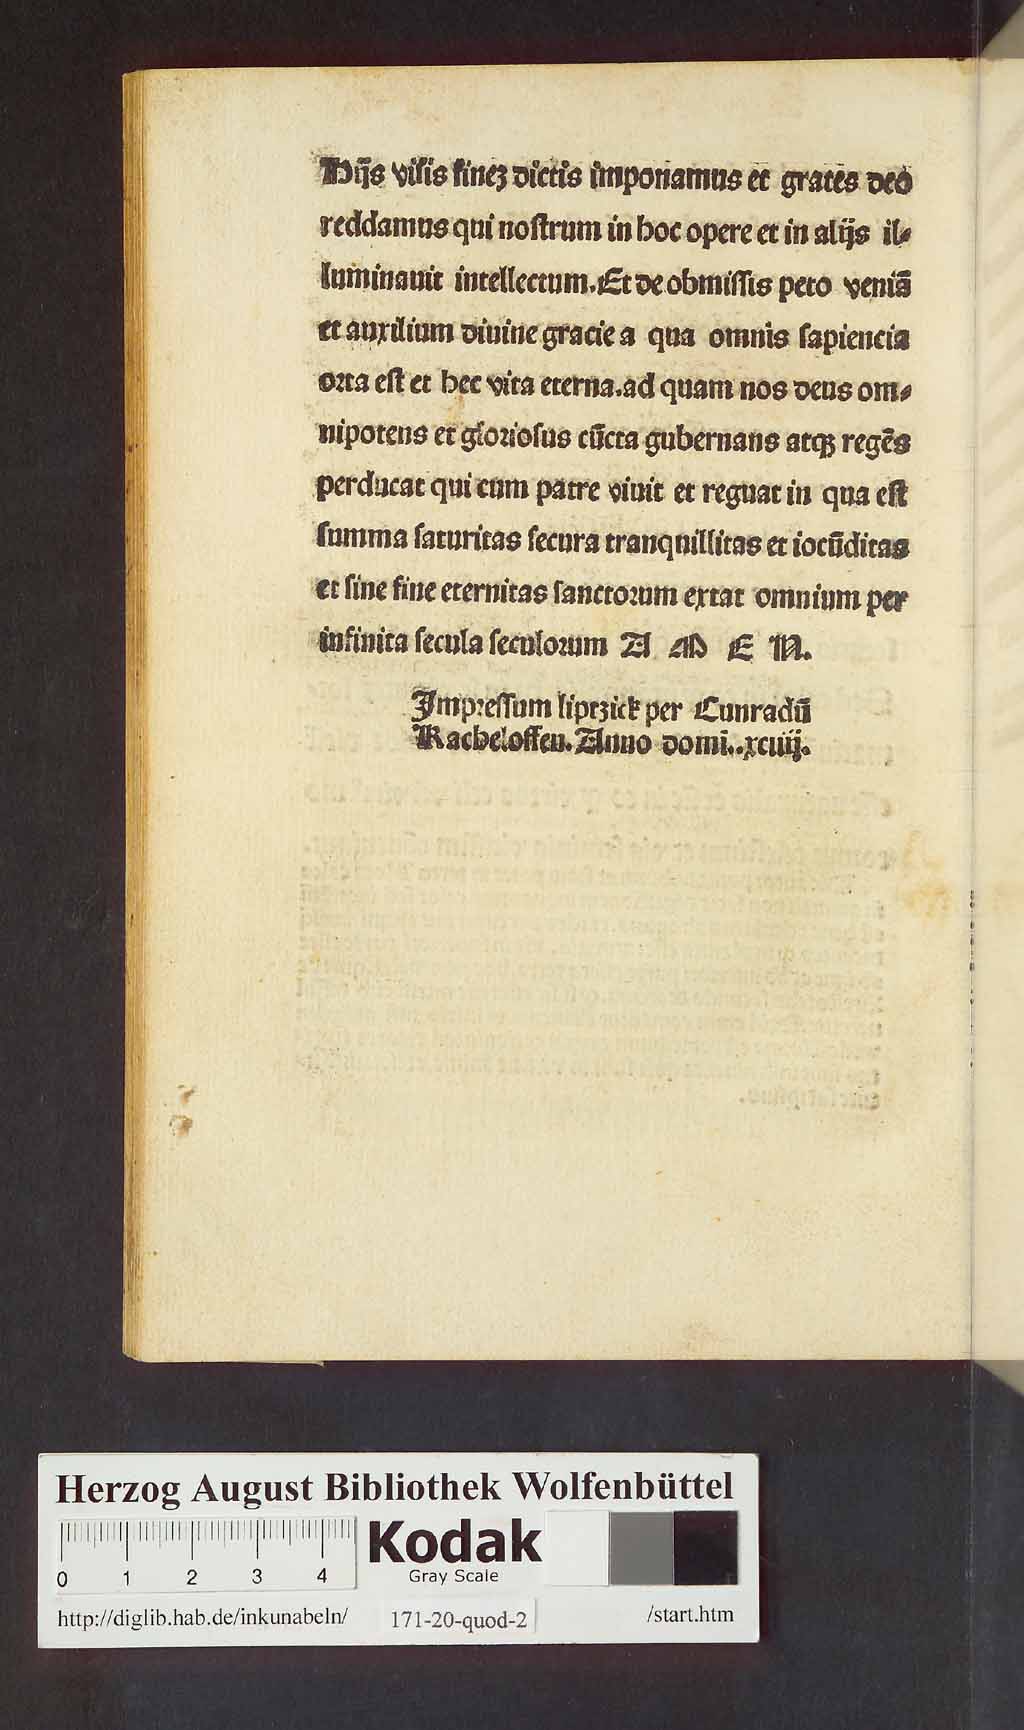 Hijs̄ viſis finez dictis imponamus et grates deo
reddamus qui noſtrum in hoc opere et in alijs il⸗
luminauit intellectum. Et de obmiſſis peto veniā
et auxilium diuine gracie a qua omnis ſapiencia
oꝛta eſt et hec vita eterna. ad quam nos deus om⸗
nipotens et gloꝛioſus cūcta gubernans atqꝫ regēs
perducat qui cum patre viuit et regnat in qua eſt
ſumma ſaturitas ſecura tranquillitas et iocūditas
et ſine fine eternitas ſanctoꝛum extat omnium per
infinita ſecula ſeculoꝛum A M E N.
Impꝛeſſum liptzick per Cunradū
Kacheloffen. Anno domi. .xciiij.
Herzog August Bibliothek Wolfenbüttel
Kodak
Gray Scale
0 1 2 3 4
http://diglib.hab.de/inkunabeln/ 171-20-quod-2 /start.htm